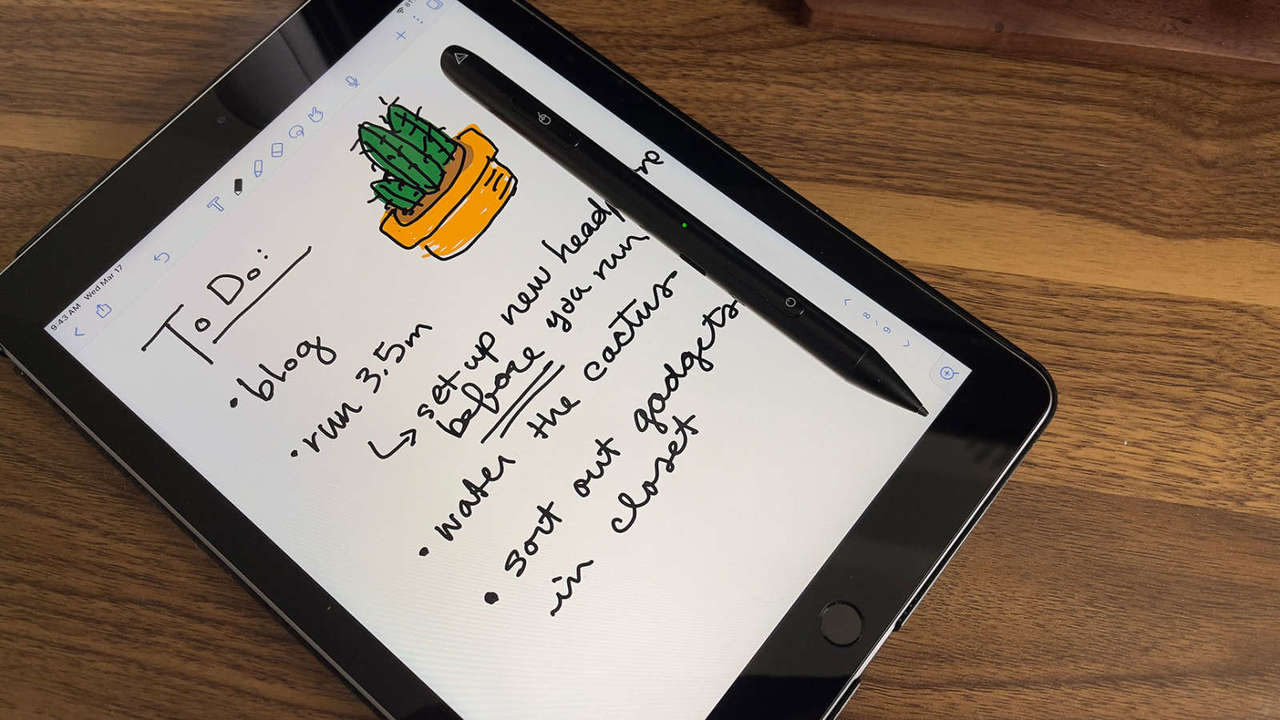 9:43 AM Wed Mar 17
To Do:
• blog
• run 3.5m
↳ set up new
before you run
• water the cactus
• sort out gadgets
in closet